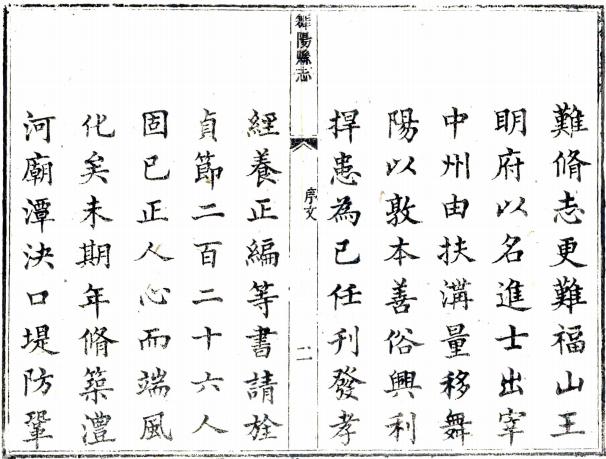 難脩志更難福山王
明府以名進士出宰
中州由扶溝量移舞
陽以敦本善俗興利
捍患為已任刊發孝
舞陽縣志
序文
二
經養正編等書請旌
貞節二百二十六人
固已正人心而端風
化矣未期年脩築澧
河廟潭決口堤防鞏